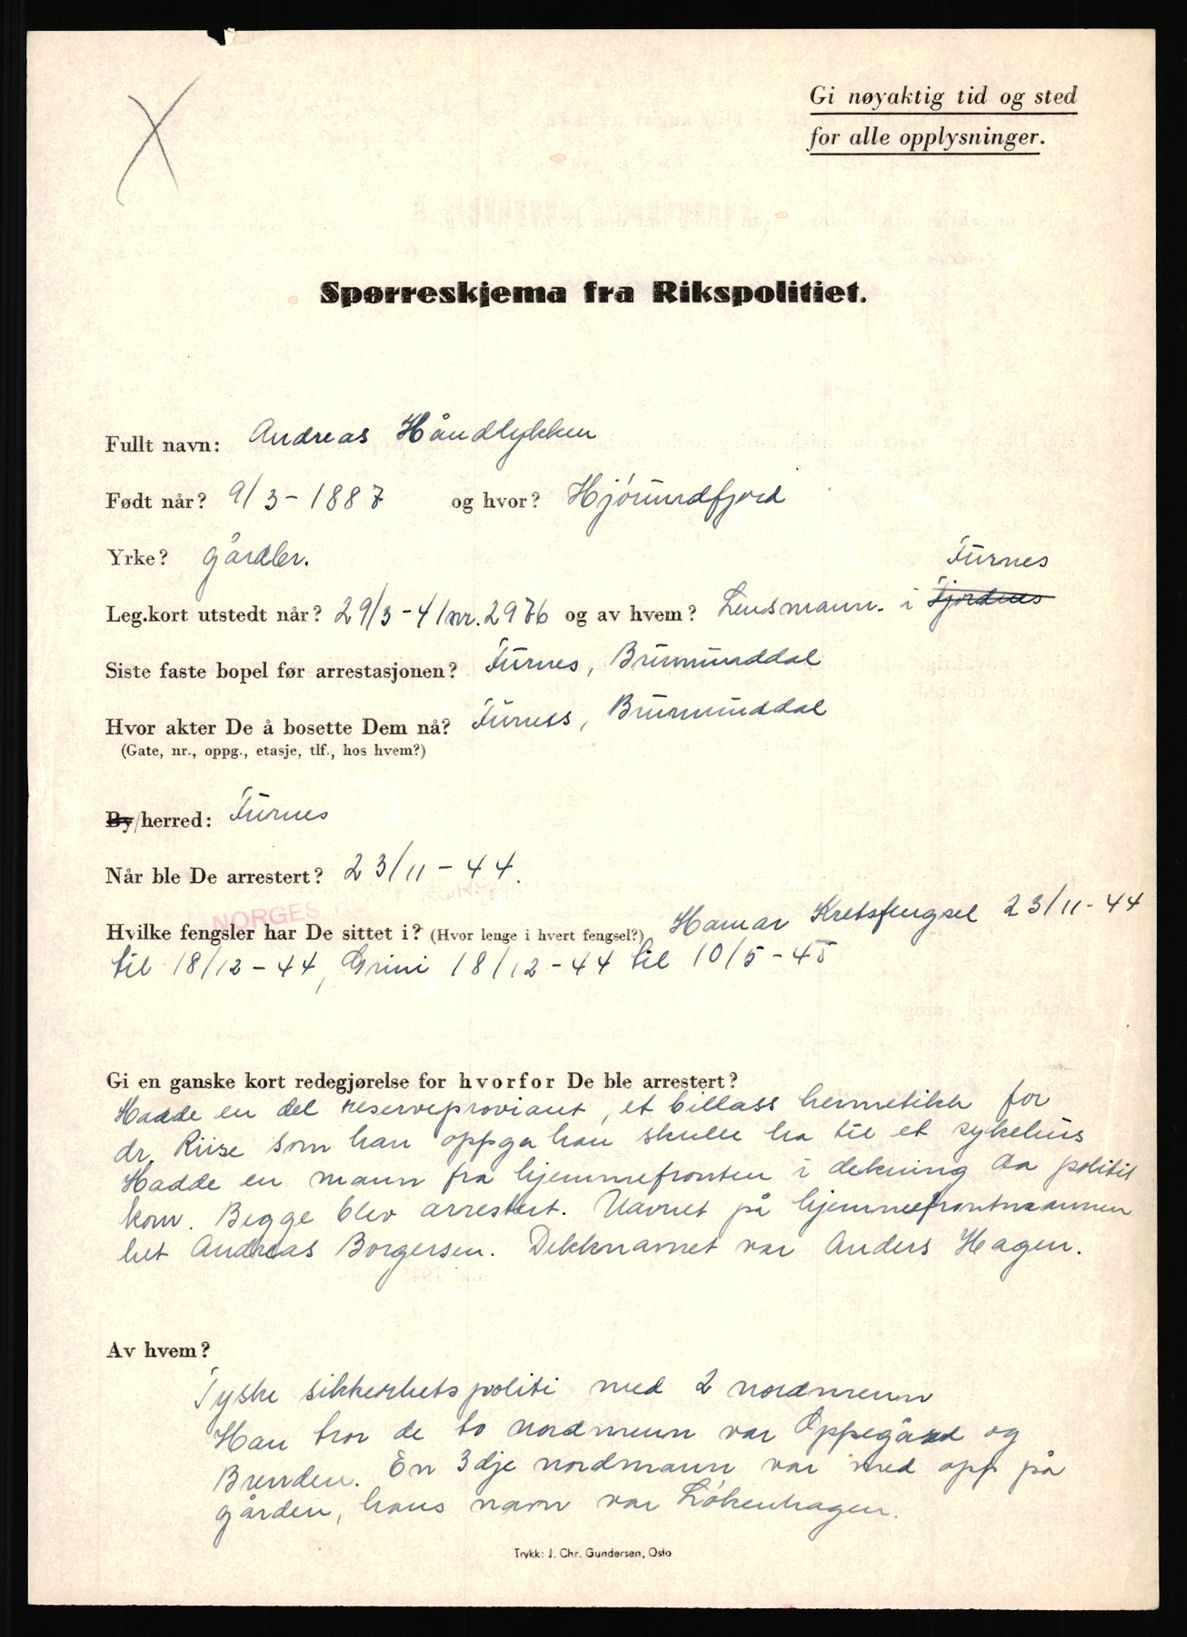 Gi nøyaktig tid og sted
for alle opplysninger.
Spørreskjema fra Rikspolitiet.
Fullt navn: Andreas Håndlykken
Født når? 9/3-1887 og hvor? Hjørundfjord
Yrke? gårdbr.
Furnes
Leg.kort utstedt når? 29/3-41 nr. 2976 og av hvem? Lensmann. i Fjordnes
Siste faste bopel før arrestasjonen? Furnes, Brumunddal
Hvor akter De å bosette Dem nå? Furnes, Brumunddal
(Gate, nr., oppg., etasje, tlf., hos hvem?)
By/herred: Furnes
Når ble De arrestert? 23/11-44.
NORGES
Hvilke fengsler har De sittet i? (Hvor lenge i hvert fengsel?) Hamar Kretsfengsel 23/11-44
til 18/12-44, Grini 18/12-44 til 10/5-45
Gi en ganske kort redegjørelse for hvorfor De ble arrestert?
Hadde en del reserveproviant, et billass hermetikk for
dr. Riise som han oppga han skulle ha til et sykehus
Hadde en mann fra hjemmefronten i dekning da politit
kom. Begge blev arrestert. Navnet på hjemmefrontmannen
het Andreas Borgersen. Dekknavnet var Anders Hagen.
Av hvem?
Tyske sikkerhetspoliti med 2 nordmenn
Han tror de to nordmenn var Oppegård og
Brenden. En 3dje nordmann var med opp på
gården, hans navn var Løkenhagen.
Trykk: J. Chr. Gundersen, Oslo